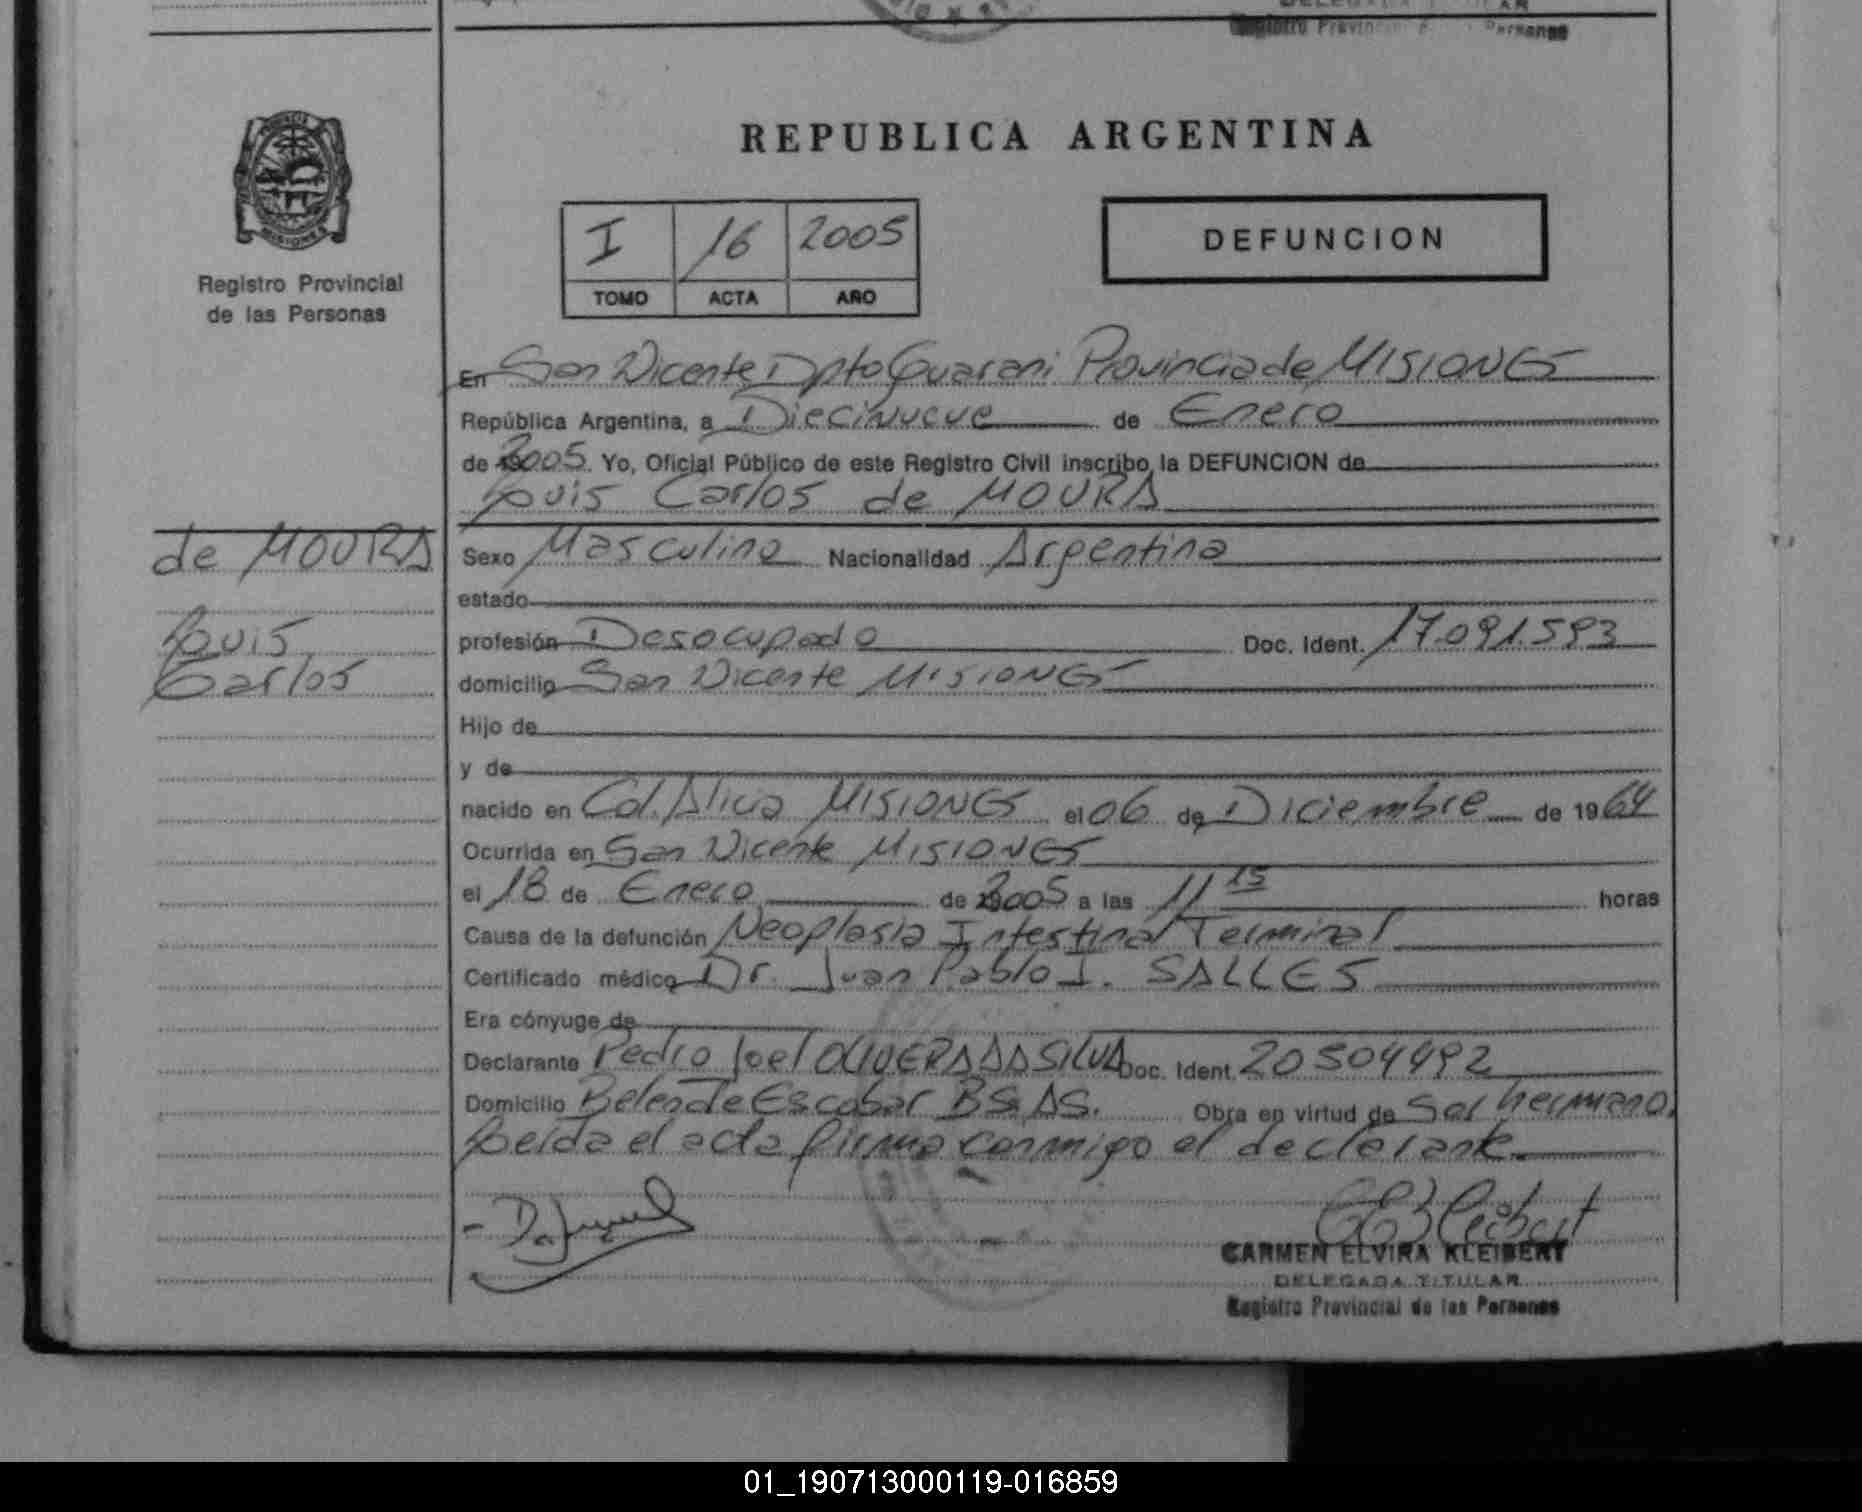 Registro Provincial de las Personas
PROVINCIA
MISIONES
Registro Provincial
de las Personas
REPUBLICA ARGENTINA
I 16 2005
TOMO ACTA AÑO
DEFUNCION
En San Vicente Dpto Guarani Provincia de MISIONES
República Argentina, a Diecinueve de Enero
de 2005. Yo, Oficial Público de este Registro Civil inscribo la DEFUNCION de
Luis Carlos de MOURA
de MOURA
Luis
Carlos
Sexo Masculino Nacionalidad Argentina
estado
profesión Desocupado Doc. Ident. 17.091.593
domicilio San Vicente MISIONES
Hijo de
y de
nacido en Col. Alicia MISIONES el 06 de Diciembre de 1964
Ocurrida en San Vicente MISIONES
el 18 de Enero de 2005 a las 11 15 horas
Causa de la defunción Neoplasia Intestinal Terminal
Certificado médico Dr. Juan Pablo I. SALLES
Era cónyuge de
Declarante Pedro Joel OLIVERA DA SILVA Doc. Ident. 20504492
Domicilio Belen de Escobar BS. AS. Obra en virtud de Ser hermano.
Leida el acta firma conmigo el declarante.
CARMEN ELVIRA KLEIBERT
DELEGADA TITULAR
Registro Provincial de las Personas
01_190713000119-016859